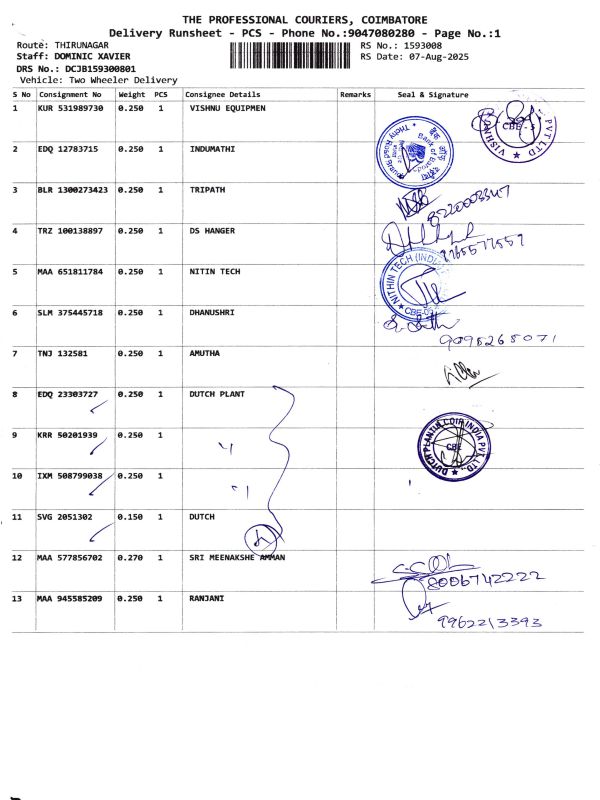 THE PROFESSIONAL COURIERS, COIMBATORE
Delivery Runsheet - PCS - Phone No.:9047080280 - Page No.:1
Route: THIRUNAGAR RS No.: 1593008
Staff: DOMINIC XAVIER RS Date: 07-Aug-2025
DRS No.: DCJB159300801
Vehicle: Two Wheeler Delivery
S No Consignment No Weight PCS Consignee Details Remarks Seal & Signature
1 KUR 531989730 0.250 1 VISHNU EQUIPMEN
CBE - 5 PVT LTD
2 EDQ 12783715 0.250 1 INDUMATHI
Bank of Baroda
3 BLR 1300273423 0.250 1 TRIPATH
4 TRZ 100138897 0.250 1 DS HANGER
9765577557
5 MAA 651811784 0.250 1 NITIN TECH
NITHIN TECH (INDIA)
6 SLM 375445718 0.250 1 DHANUSHRI
9095268071
7 TNJ 132581 0.250 1 AMUTHA
8 EDQ 23303727 0.250 1 DUTCH PLANT
9 KRR 50201939 0.250 1 "
DUTCH PLANTIN COIR INDIA PVT. LTD. CBE
10 IXM 508799038 0.250 1 "
11 SVG 2051302 0.150 1 DUTCH
4
12 MAA 577856702 0.270 1 SRI MEENAKSHE AMMAN
8006742222
13 MAA 945585209 0.250 1 RANJANI
9962213393